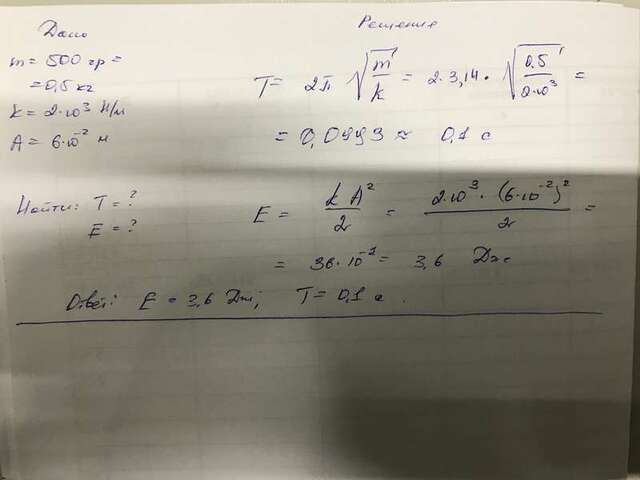 Дано
m = 500 гр =
= 0,5 кг
k = 2·10³ Н/м
A = 6·10⁻² м
Найти: T = ?
E = ?
Решение
T = 2π √(m/k) = 2·3,14· √(0,5/(2·10³)) =
= 0,0993 ≈ 0,1 с
E = kA²/2 = (2·10³·(6·10⁻²)²)/2 =
= 36·10⁻¹ = 3,6 Дж
Ответ: E = 3,6 Дж; T = 0,1 с.